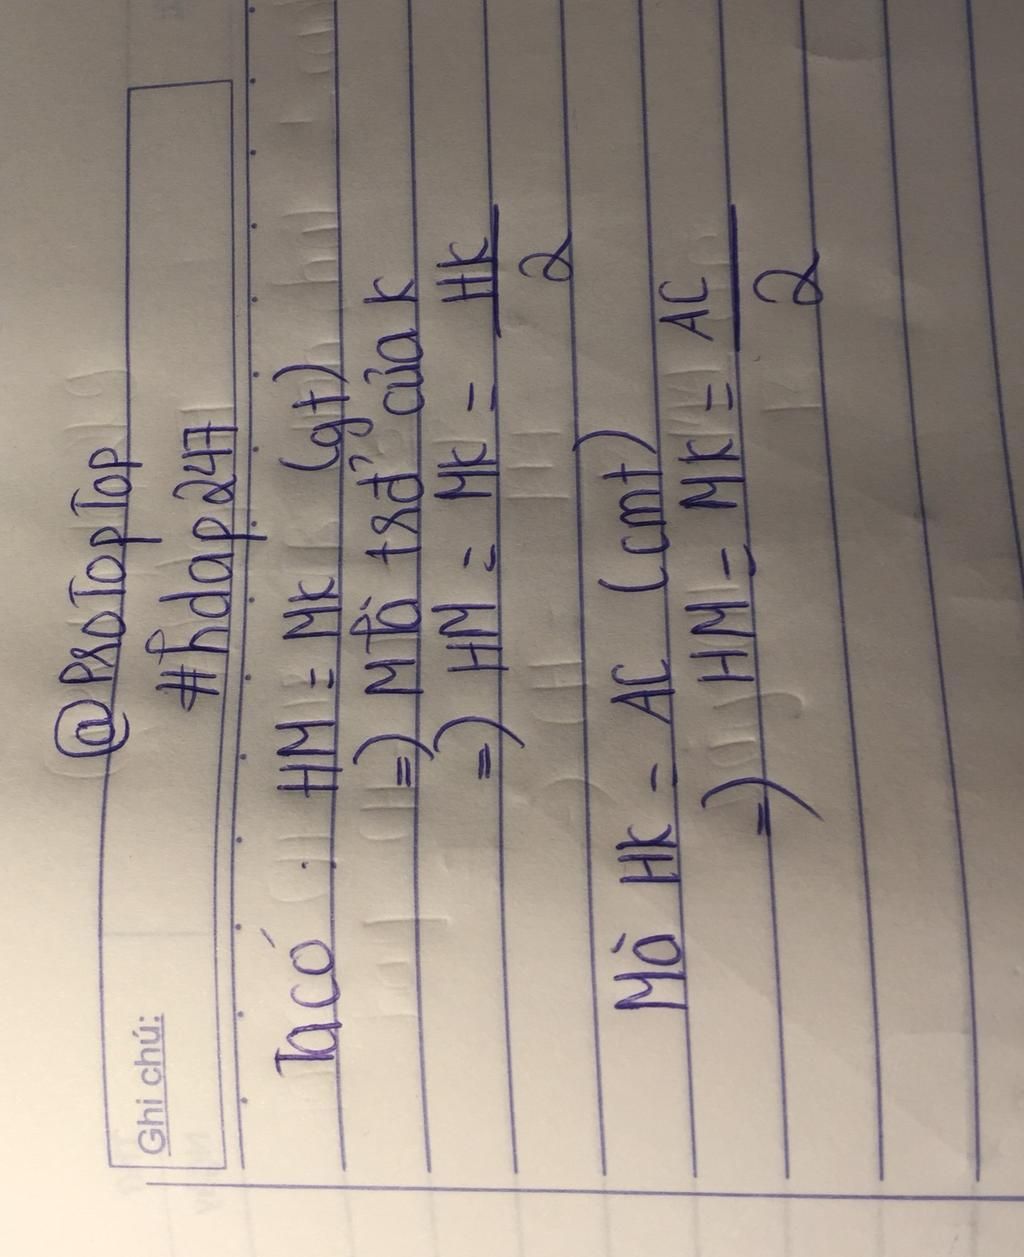 @ProTopTop
Ghi chú:
#hdap247
Ta có : HM = MK (gt)
=) M là trđ' của K
=) HM = MK = HK
2
Mà HK = AC (cmt)
=) HM = MK = AC
2